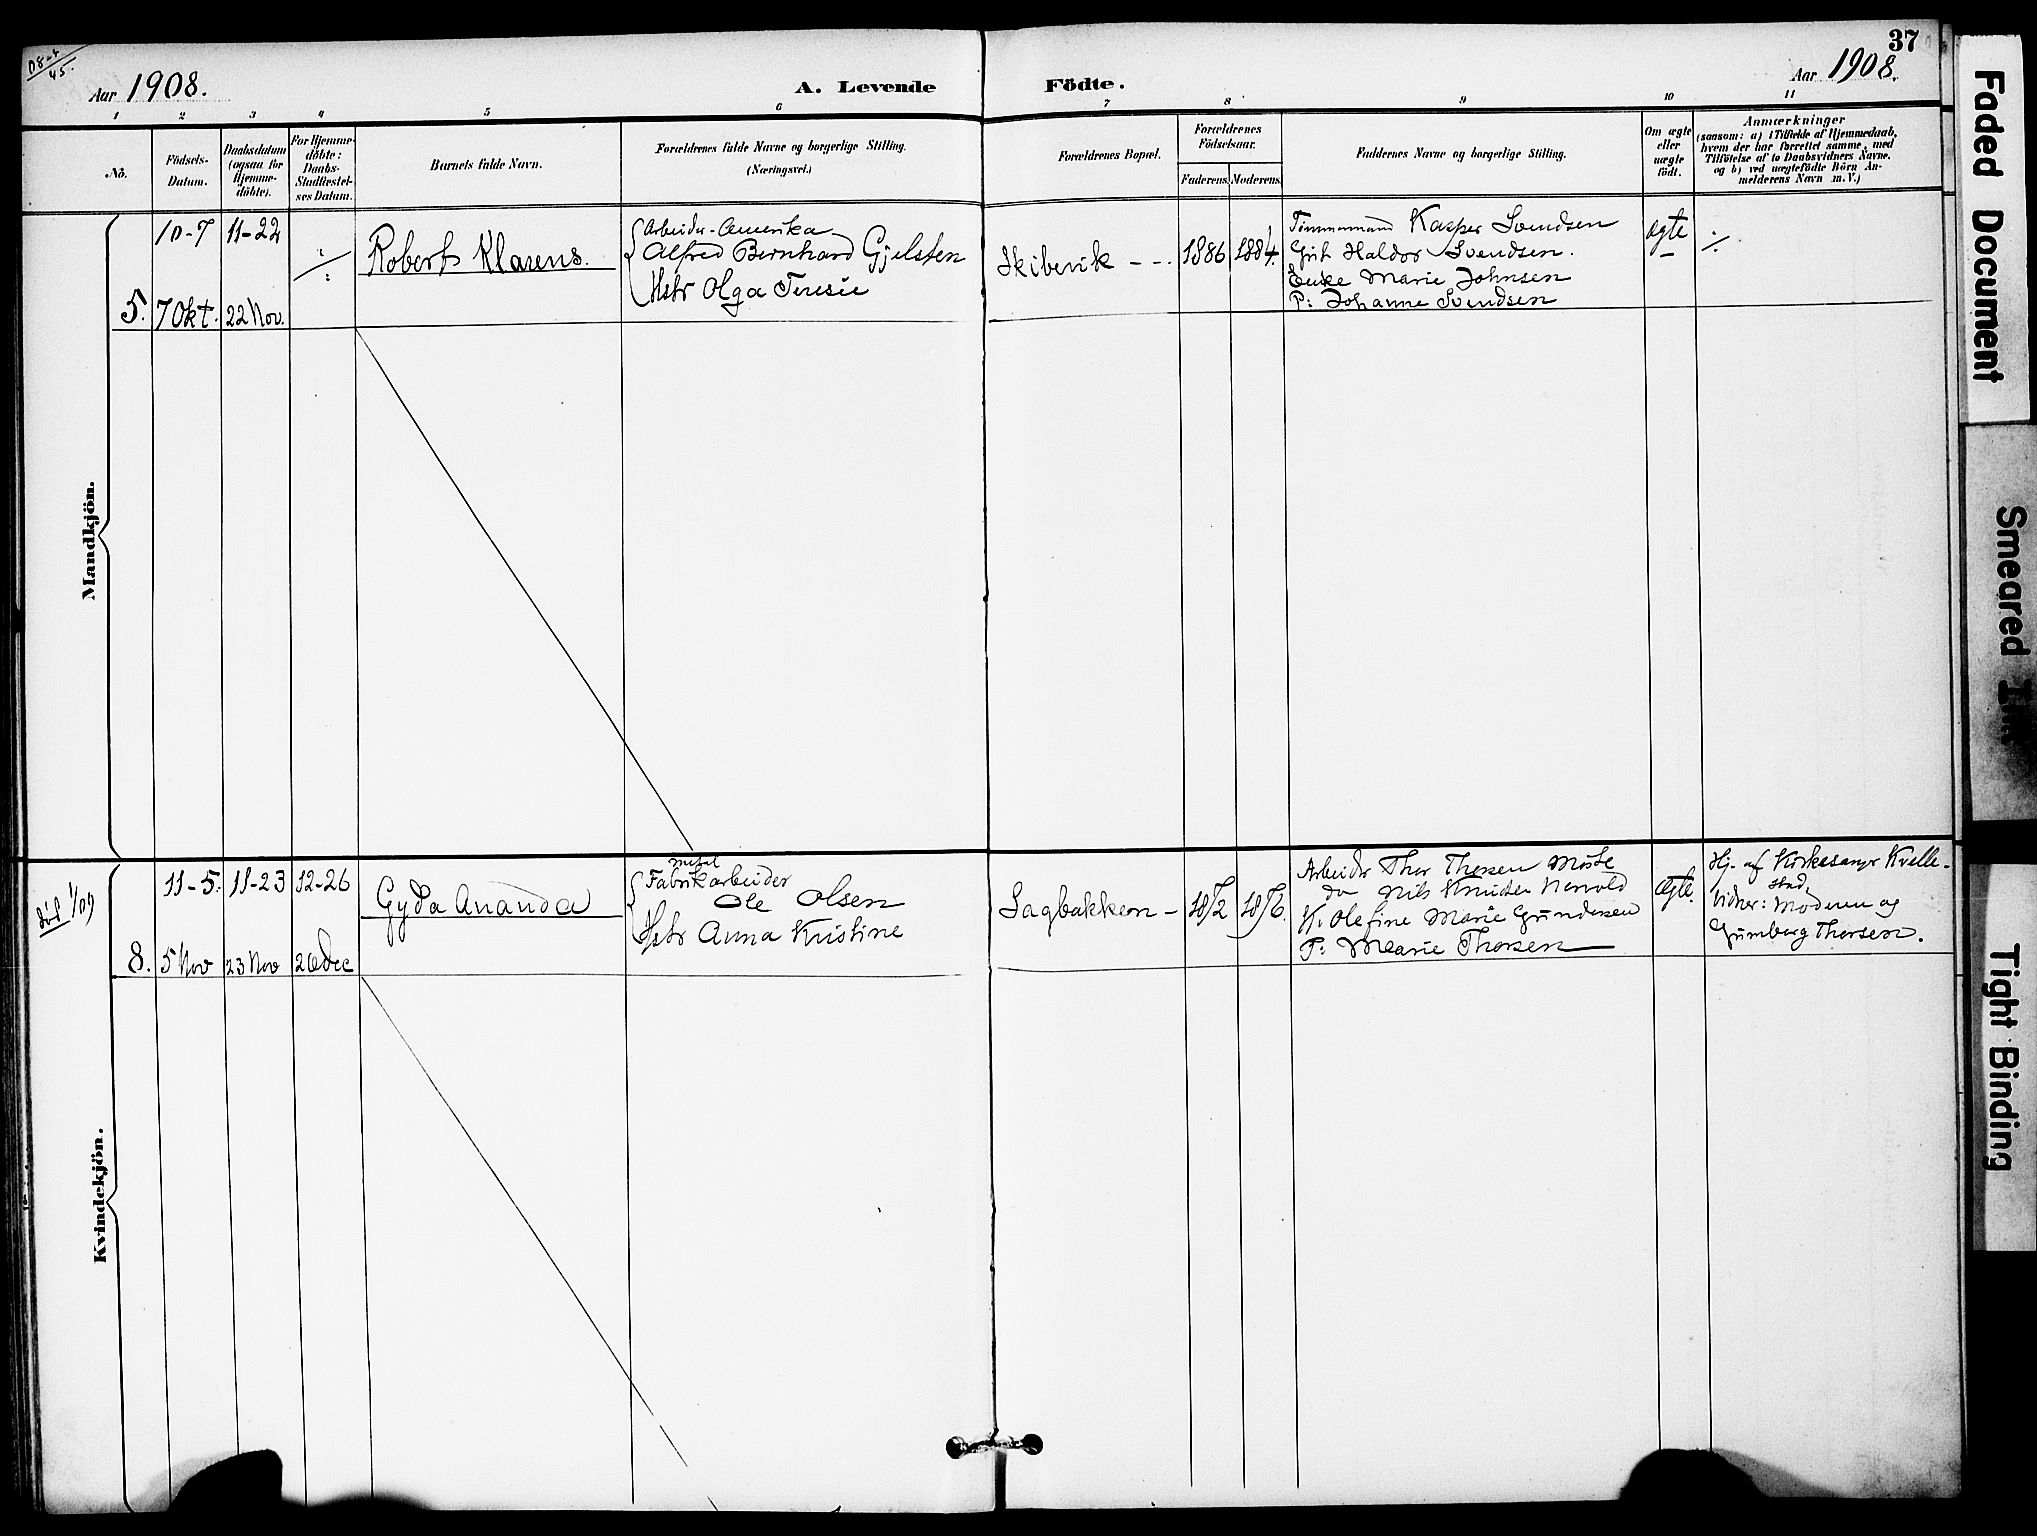 08-4
45.
Aar 1908.
A. Levende
Födte.
Aar 1908.
37
1 2 3 4 5 6 7 8 9 10 11
No.
Födsels-
Datum.
Daabsdatum
(ogsaa for
Hjemme-
döbte).
For Hjemme-
döbte:
Daabs-
Stadfæstel-
ses Datum.
Barnets fulde Navn.
Forældrenes fulde Navne og borgerlige Stilling.
(Næringsvei.)
Forældrenes Bopæl.
Forældrenes
Födselsaar.
Faderens.
Moderens.
Faddernes Navne og borgerlige Stilling.
Om ægte
eller
uægte
födt.
Anmærkninger
(saasom: a) i Tilfælde af Hjemmedaab,
hvem der har forrettet samme, med
Tilföielse af to Daabsvidners Navne.
og b) ved uægtefödte Börn An-
melderens Navn m. V.)
Mandkjön.
5.
10-7
7 Okt.
11-22
22 Nov.
Robert Klarens.
Arbeider-Amerika
Alfred Bernhard Gjelsten
Hstr Olga Teresie
Skibevik - -.
1886
1884.
Tømmermand Kasper Svendsen
Grb Haldor Svendsen.
Enke Marie Johnsen
P: Johanne Svendsen
ægte
Kvindekjön.
död 1/1 09
8.
11-5.
5 Nov
11-23
23 Nov
12-26
26 Dec
Gyda Ananda
Fabrikarbeider
Ole Olsen
Hstr Anna Kristine
Sagbakken -
1872
1876.
Arbeider Thor Thorsen Moste
do Nils Knudsen Nervold
K. Olefine Marie Gundersen
P: Marie Thorsen
ægte.
Hj. af Kirkesanger Kvelle-
stad,
Vidner: Moderen og
Gunborg Thorsen.
Faded Document
Smeared Ink
Tight Binding